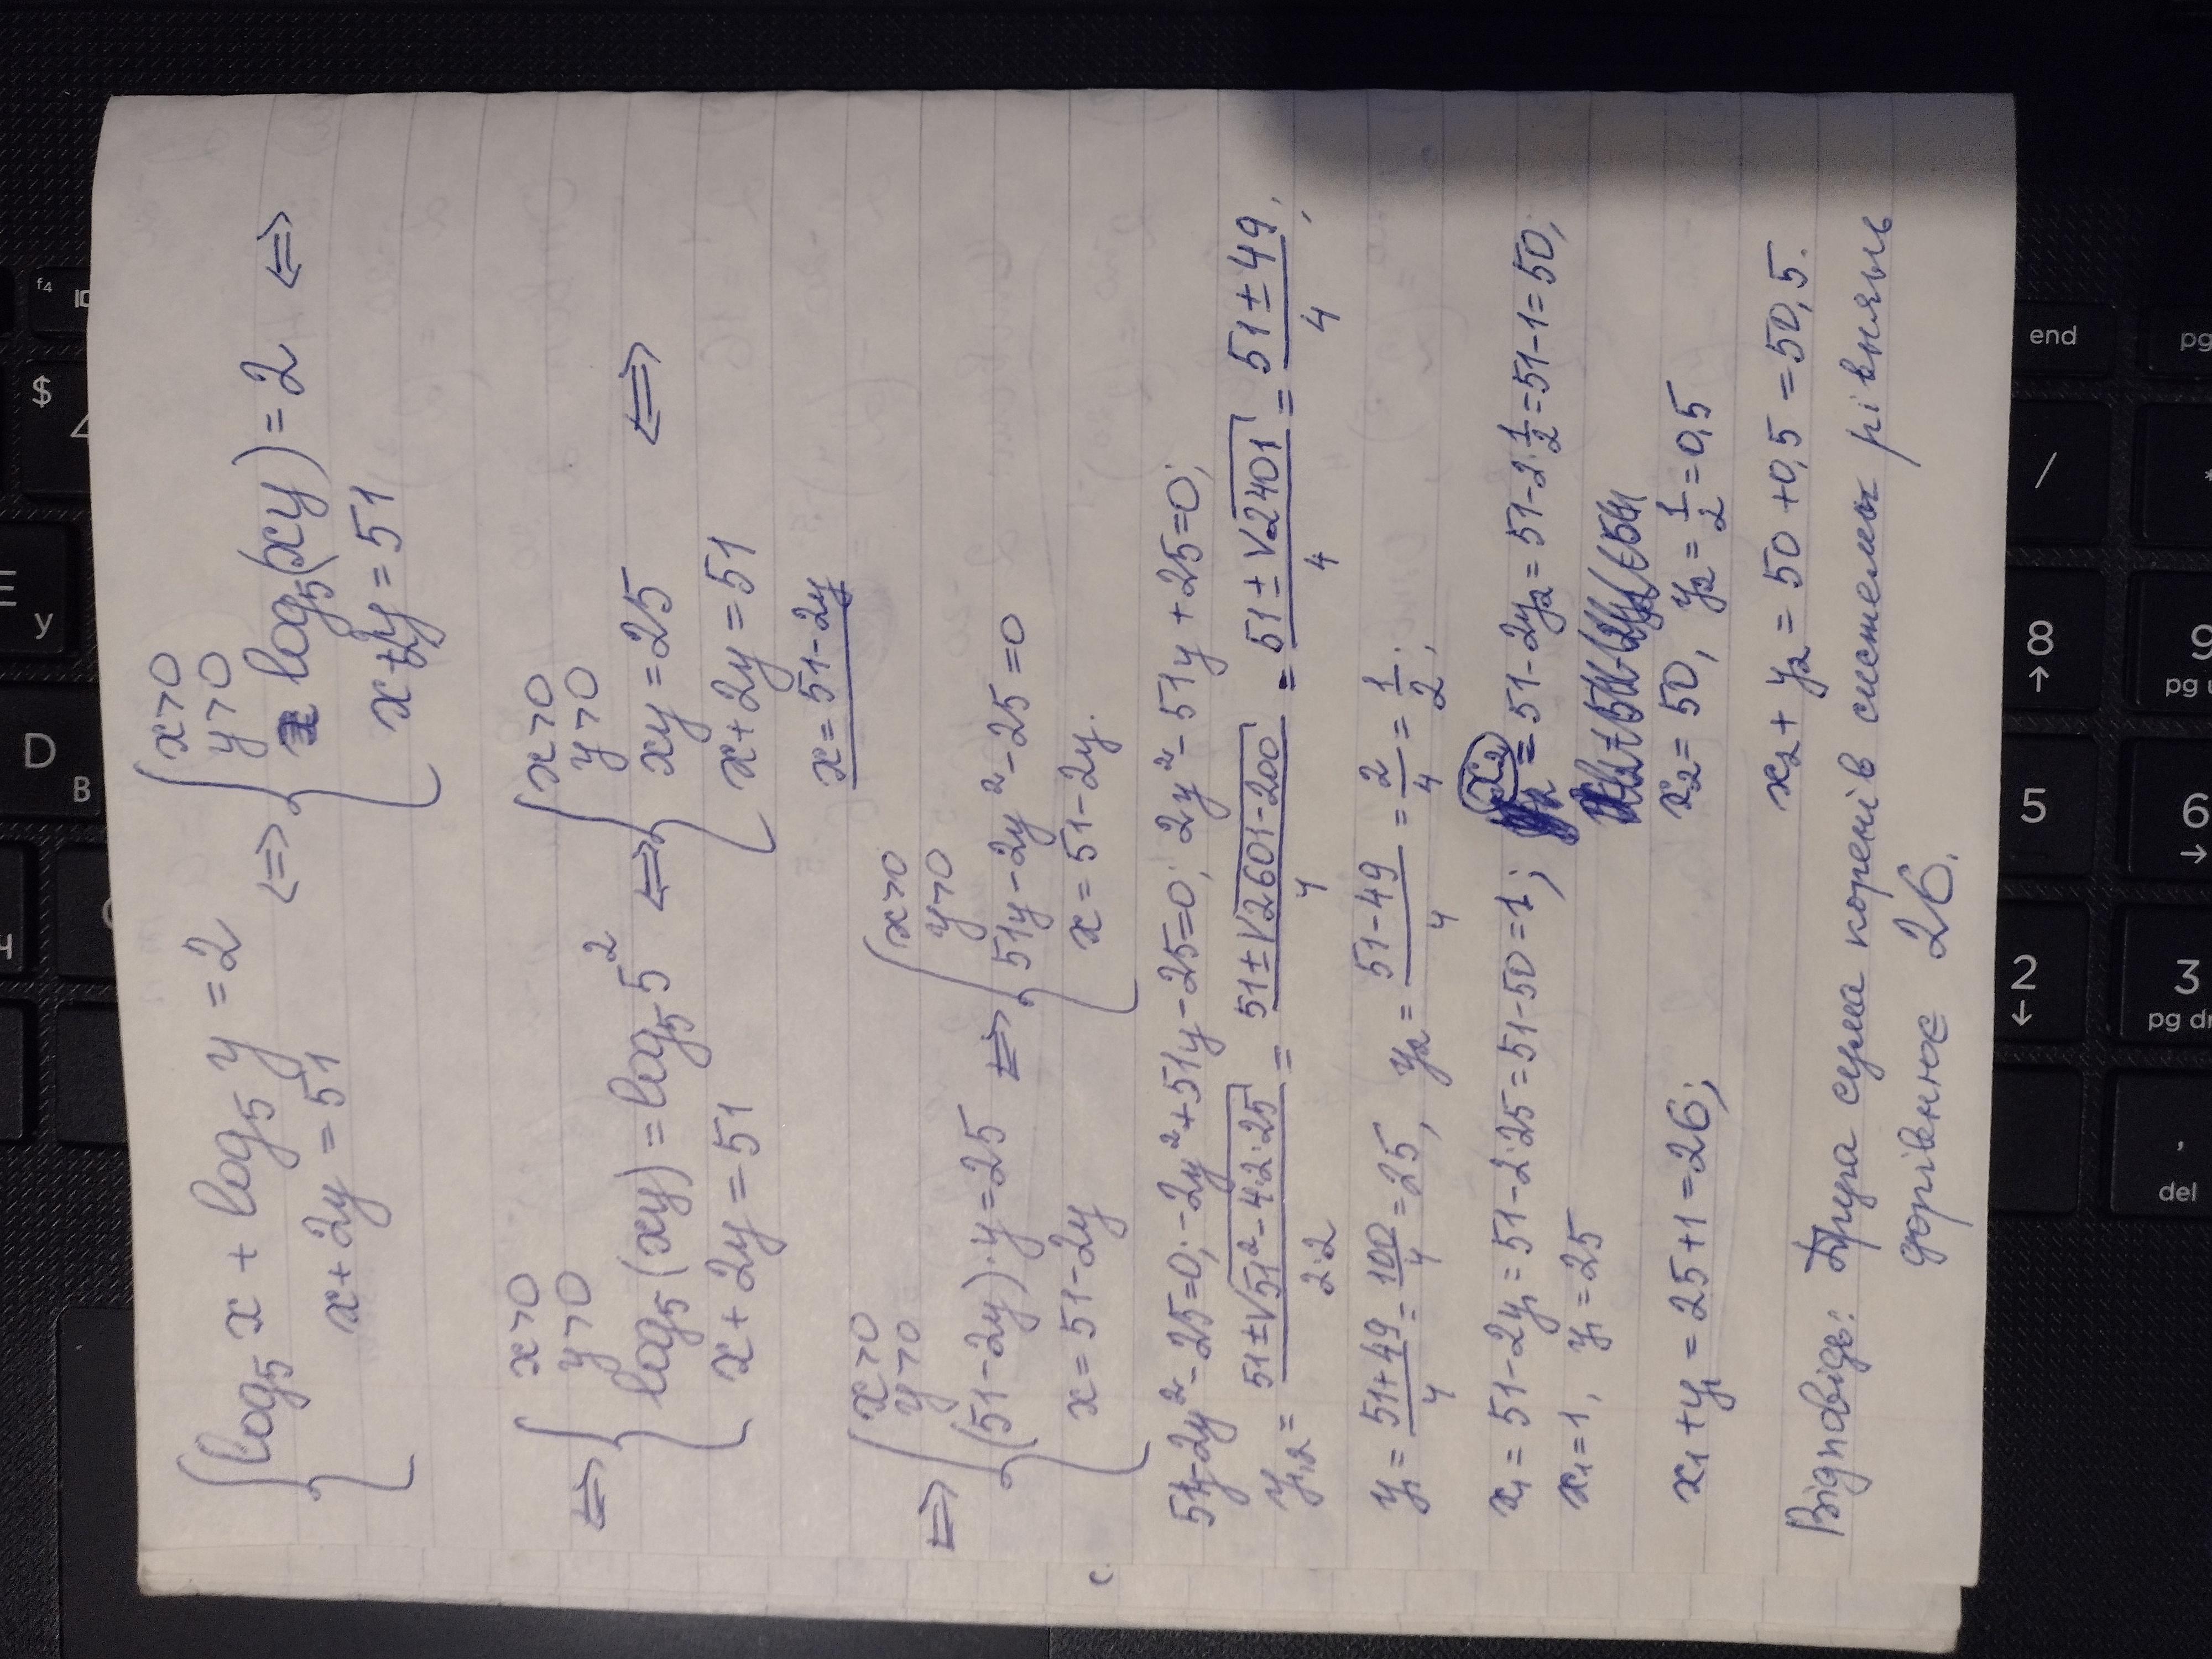 log₅x + log₅y = 2
x + 2y = 51
⇔
x>0
y>0
log₅(xy) = 2
x+2y = 51
⇔
⇔
x>0
y>0
log₅(xy) = log₅5²
x + 2y = 51
⇔
x>0
y>0
xy = 25
x+2y = 51
x = 51-2y
⇔
⇔
x>0
y>0
(51-2y)·y = 25
x = 51-2y
⇔
x>0
y>0
51y-2y²-25=0
x = 51-2y.
51y-2y²-25=0; -2y²+51y-25=0; 2y²-51y+25=0;
y₁,₂ = (51±√(51²-4·2·25))/(2·2) = (51±√(2601-200))/4 = (51±√2401)/4 = (51±49)/4;
y₁ = (51+49)/4 = 100/4 = 25, y₂ = (51-49)/4 = 2/4 = 1/2;
x₁ = 51-2y₁ = 51-2·25 = 51-50 = 1; x₂ = 51-2y₂ = 51-2·1/2 = 51-1 = 50;
x₁=1, y₁=25
x₂ = 50, y₂ = 1/2 = 0,5
x₁+y₁ = 25+1 = 26;
x₂+y₂ = 50+0,5 = 50,5.
Відповідь: Друга сума коренів системи рівнянь
дорівнює 26.
f4
$
y
D
В
8
5
2
end
/
9
pg u
6
3
pg dn
.
del
pg